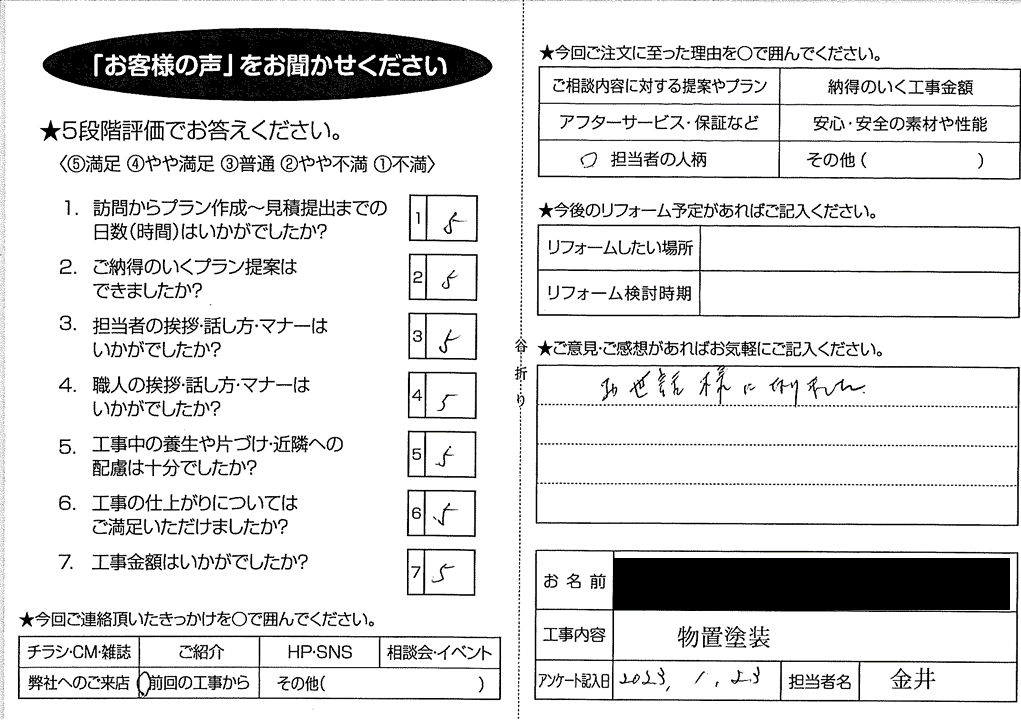 「お客様の声」をお聞かせください
★5段階評価でお答えください。
〈⑤満足 ④やや満足 ③普通 ②やや不満 ①不満〉
1. 訪問からプラン作成～見積提出までの
日数(時間)はいかがでしたか?
1 5
2. ご納得のいくプラン提案は
できましたか?
2 5
3. 担当者の挨拶・話し方・マナーは
いかがでしたか?
3 5
4. 職人の挨拶・話し方・マナーは
いかがでしたか?
4 5
5. 工事中の養生や片づけ・近隣への
配慮は十分でしたか?
5 5
6. 工事の仕上がりについては
ご満足いただけましたか?
6 5
7. 工事金額はいかがでしたか?
7 5
★今回ご連絡頂いたきっかけを○で囲んでください。
チラシ・CM・雑誌 ご紹介 HP・SNS 相談会・イベント
弊社へのご来店 前回の工事から その他( )
谷折り
★今回ご注文に至った理由を○で囲んでください。
ご相談内容に対する提案やプラン 納得のいく工事金額
アフターサービス・保証など 安心・安全の素材や性能
○ 担当者の人柄 その他( )
★今後のリフォーム予定があればご記入ください。
リフォームしたい場所
リフォーム検討時期
★ご意見・ご感想があればお気軽にご記入ください。
お世話様になりました。
お名前
工事内容 物置塗装
アンケート記入日 2023, 1, 23 担当者名 金井